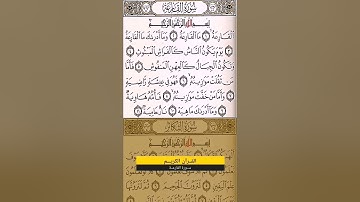 سُورَةُ القَارِعَةِ
بِسْمِ اللَّهِ الرَّحْمَٰنِ الرَّحِيمِ
الْقَارِعَةُ ۝ مَا الْقَارِعَةُ ۝ وَمَا أَدْرَاكَ مَا الْقَارِعَةُ
۝ يَوْمَ يَكُونُ النَّاسُ كَالْفَرَاشِ الْمَبْثُوثِ ۝
وَتَكُونُ الْجِبَالُ كَالْعِهْنِ الْمَنْفُوشِ ۝ فَأَمَّا
مَنْ ثَقُلَتْ مَوَازِينُهُ ۝ فَهُوَ فِي عِيشَةٍ رَاضِيَةٍ
۝ وَأَمَّا مَنْ خَفَّتْ مَوَازِينُهُ ۝ فَأُمُّهُ هَاوِيَةٌ
۝ وَمَا أَدْرَاكَ مَا هِيَهْ ۝ نَارٌ حَامِيَةٌ ۝
سُورَةُ التَّكَاثُرِ
بِسْمِ اللَّهِ الرَّحْمَٰنِ الرَّحِيمِ
القرآن الكريم
سورة القارعة